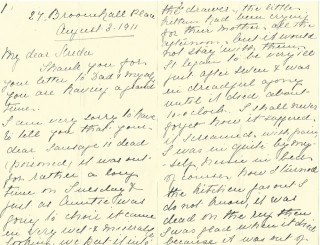 1.
27, Broomhall Place
August 3. 1911
My dear
Thank you for
your letter to Dad & myself
you are having a grand
time.
I am very sorry to have
to tell you that your
dear Sausage is dead
(poisoned), it was out
for rather a long
time on Tuesday &
just as Auntie was
going to choir it came
in very wet & miserable
looking, we put it into
the drawer, the little
kitten had been crying
for their mother all the
afternoon, but it would
not stay with them.
It began to be very ill
just after seven & was
in dreadful agony
until it died about
10-o'clock. I shall never
forget how it suffered.
It screamed with pain
I was in quite by my-
self, being in bed
of course, how I turned
the kitchen gas out I
do not know, it was
dead on the rug then.
I was glad when it died
because it was out of